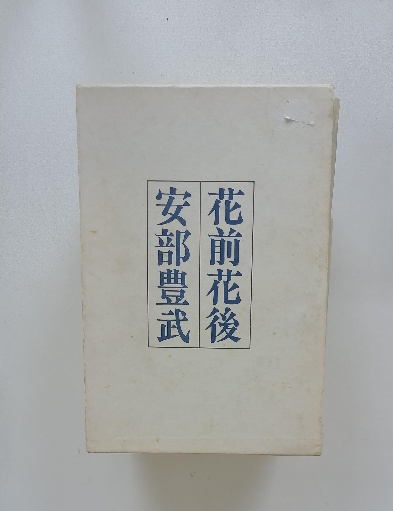 花前花後
安部豊武